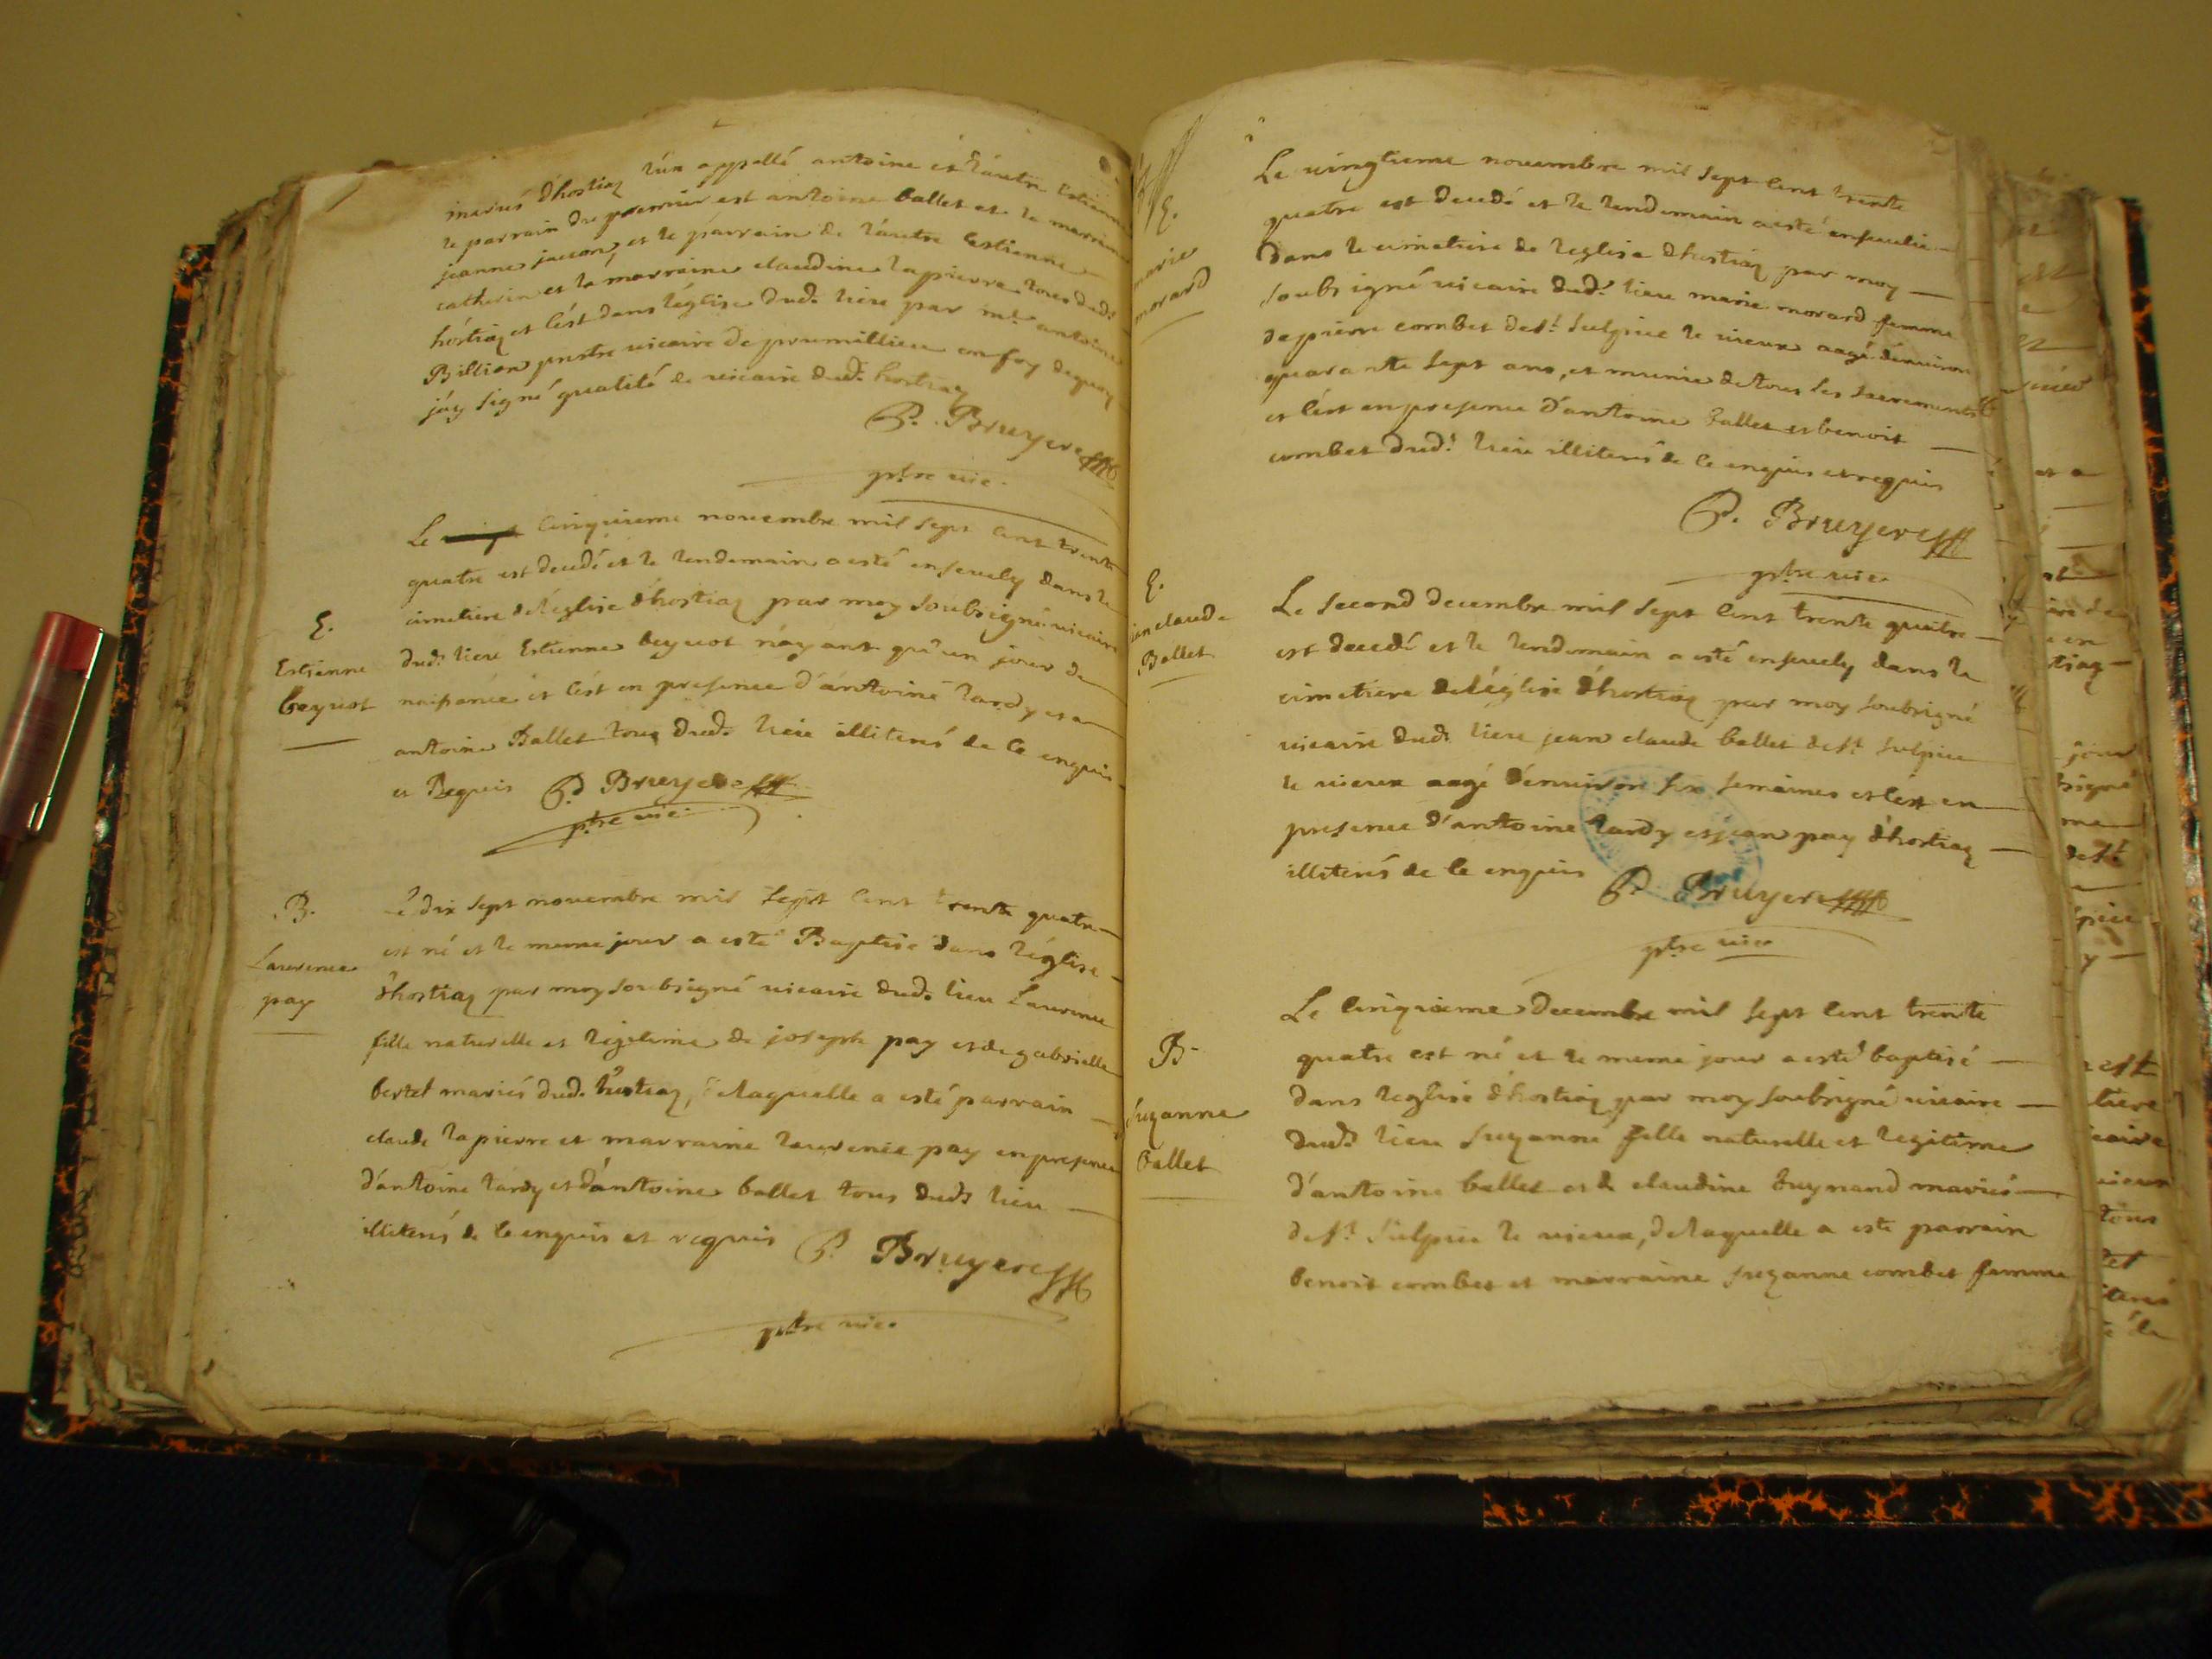 mariés d'hostiaz l'un appellé antoine et l'autre Estienne
le parrain du premier est antoine ballet et la marraine
jeanne jaccon, et le parrain de l'autre Estienne
catherin et la marraine claudine lapierre tous dud.
hostiaz et c'est dans l'église dud. lieu par mr antoine
Billion prestre vicaire de proumillieu en foy dequoy
j'ay signé qualité de vicaire dud. hostiaz
P. Bruyere
ptre vic.
E.
Estienne
beyuot
Le cinquieme novembre mil sept cent trente
quatre est decedé et le lendemain a esté ensevely dans le
cimetiere de l'église d'hostiaz par moy soubsigné vicaire
dud. lieu Estienne beyuot n'ayant qu'un jour de
naissance et c'est en presence d'antoine tardy et
antoine Ballet tous dud. lieu illiterés de ce enquis
et Requis P. Bruyere
ptre vic.
B.
Laurence
pay
Le dix sept novembre mil sept cent trente quatre
est né et le meme jour a esté Baptisé dans l'église
d'hostiaz par moy soubsigné vicaire dud. lieu Laurence
fille naturelle et legitime de joseph pay et de gabrielle
bertet mariés dud. hostiaz, delaquelle a esté parrain
claude lapierre et marraine laurence pay en presence
d'antoine tardy et d'antoine ballet tous dud. lieu
illiterés de ce enquis et requis P. Bruyere
ptre vic.
E.
marie
morard
Le vingtieme novembre mil sept cent trente
quatre est decedé et le lendemain a esté ensevelie
dans le cimetiere de leglise d'hostiaz par moy
soubsigné vicaire dud. lieu marie morard femme
de pierre combet de st Sulpice le vieux aagé d'environ
quarante sept ans, et munie de tous ses sacrements
et c'est en presence d'antoine ballet et benoit
combet dud. lieu illiterés de ce enquis et requis
P. Bruyere
ptre vic.
E.
jean claude
Ballet
Le second decembre mil sept cent trente quatre
est decedé et le lendemain a esté ensevely dans le
cimetiere de l'église d'hostiaz par moy soubsigné
vicaire dud. lieu jean claude ballet de st sulpice
le vieux aagé d'environ six semaines et c'est en
presence d'antoine tardy et jean pay d'hostiaz
illiterés de ce enquis P. Bruyere
ptre vic.
B
Suzanne
Ballet
Le cinquieme decembre mil sept cent trente
quatre est né et le meme jour a esté baptisé
dans leglise d'hostiaz par moy soubsigné vicaire
dud. lieu suzanne fille naturelle et legitime
d'antoine ballet et de claudine buynand mariés
de st Sulpice le vieux, delaquelle a esté parrain
benoit combet et marraine suzanne combet femme